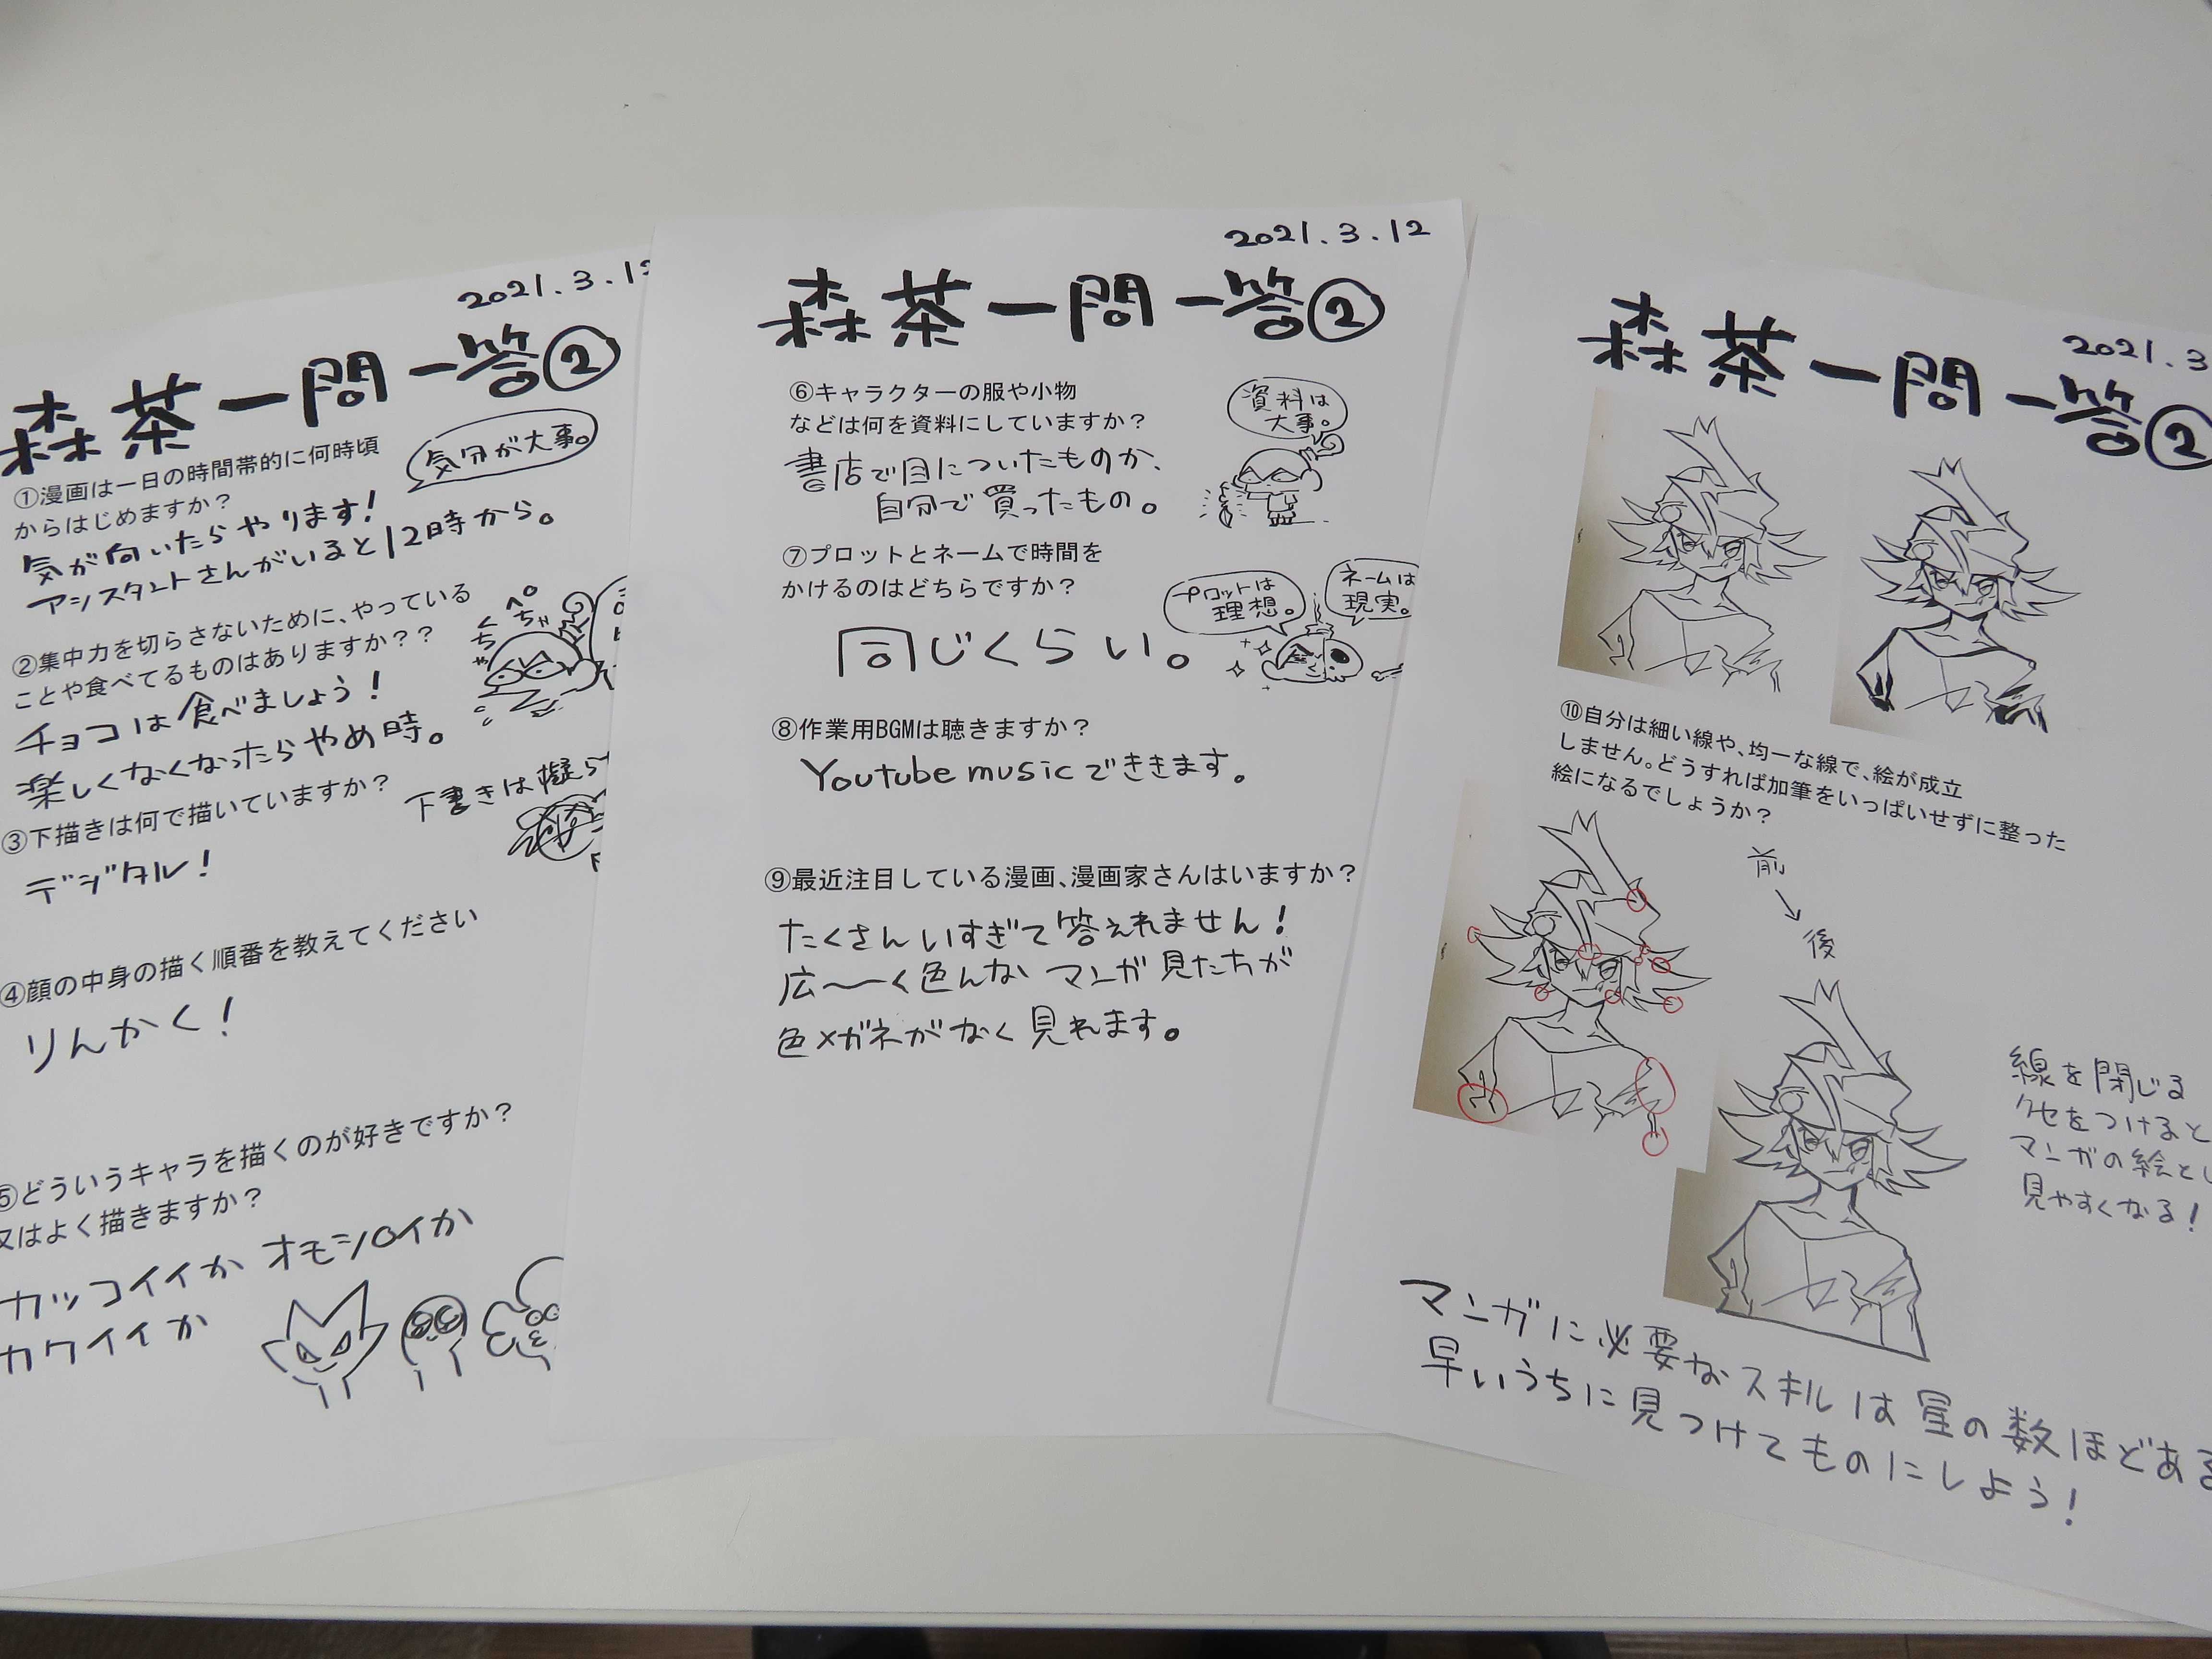 2021.3.12
森茶一問一答②
①漫画は一日の時間帯的に何時頃
からはじめますか？
気分が大事。
気が向いたらやります！
アシスタントさんがいると12時から。
②集中力を切らさないために、やっている
ことや食べてるものはありますか？？
くちゃ
ぺちゃ
チョコは食べましょう！
楽しくなくなったらやめ時。
③下描きは何で描いていますか？
下書きは擬ら
デジタル！
④顔の中身の描く順番を教えてください
りんかく！
⑤どういうキャラを描くのが好きですか？
又はよく描きますか？
カッコイイか オモシロイか
カワイイか
2021.3.12
森茶一問一答②
⑥キャラクターの服や小物
などは何を資料にしていますか？
資料は
大事。
書店で目についたものか、
自分で買ったもの。
⑦プロットとネームで時間を
かけるのはどちらですか？
プロットは
理想。
ネームは
現実。
同じくらい。
⑧作業用BGMは聴きますか？
Youtube musicでききます。
⑨最近注目している漫画、漫画家さんはいますか？
たくさんいすぎて答えれません！
広〜く色んな マンガ見たちが
色メガネがなく見れます。
2021.3
森茶一問一答②
⑩自分は細い線や、均一な線で、絵が成立
しません。どうすれば加筆をいっぱいせずに整った
絵になるでしょうか？
前
後
線を閉じる
クセをつけると
マンガの絵とし
見やすくなる！
マンガに必要なスキルは星の数ほどある
早いうちに見つけてものにしよう！